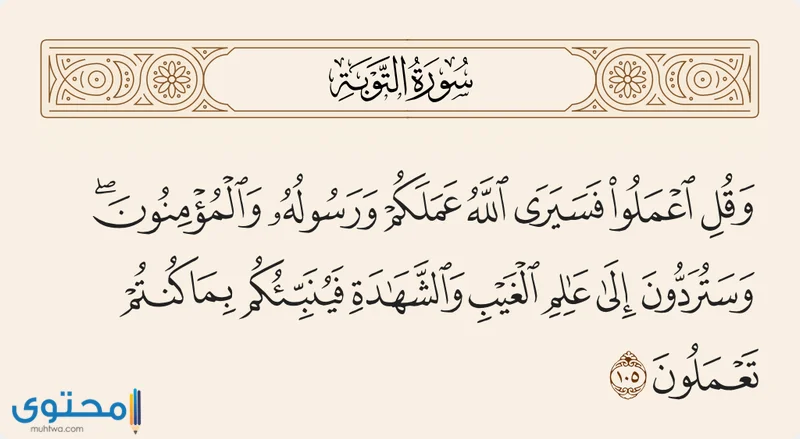 سُورَةُ التَّوْبَةِ
وَقُلِ ٱعْمَلُوا۟ فَسَيَرَى ٱللَّهُ عَمَلَكُمْ وَرَسُولُهُۥ وَٱلْمُؤْمِنُونَ ۖ
وَسَتُرَدُّونَ إِلَىٰ عَٰلِمِ ٱلْغَيْبِ وَٱلشَّهَٰدَةِ فَيُنَبِّئُكُم بِمَا كُنتُمْ
تَعْمَلُونَ ١٠٥
محتوى
muhtwa.com